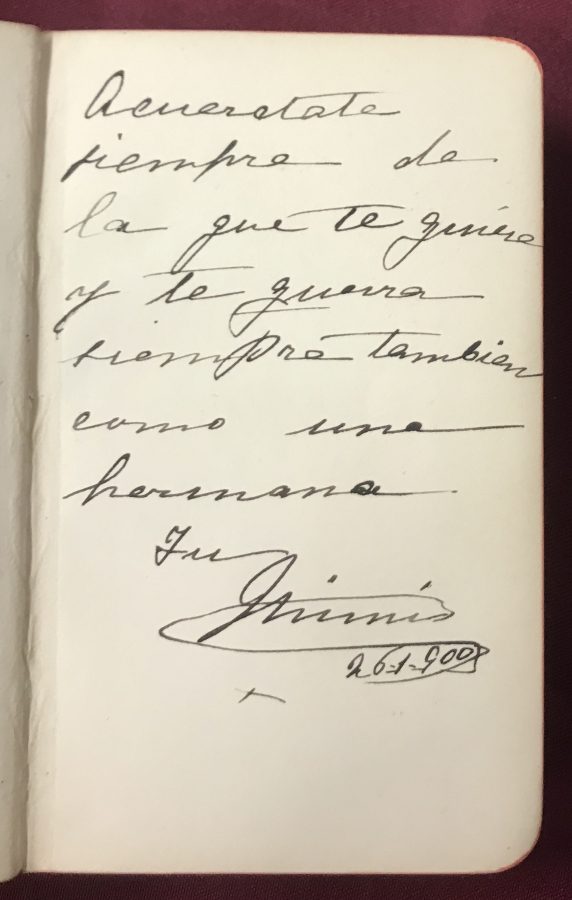 Acuerdate
siempre de
la que te quiere
y te querra
siempre tambien
como una
hermana.
Tu
26-1-900